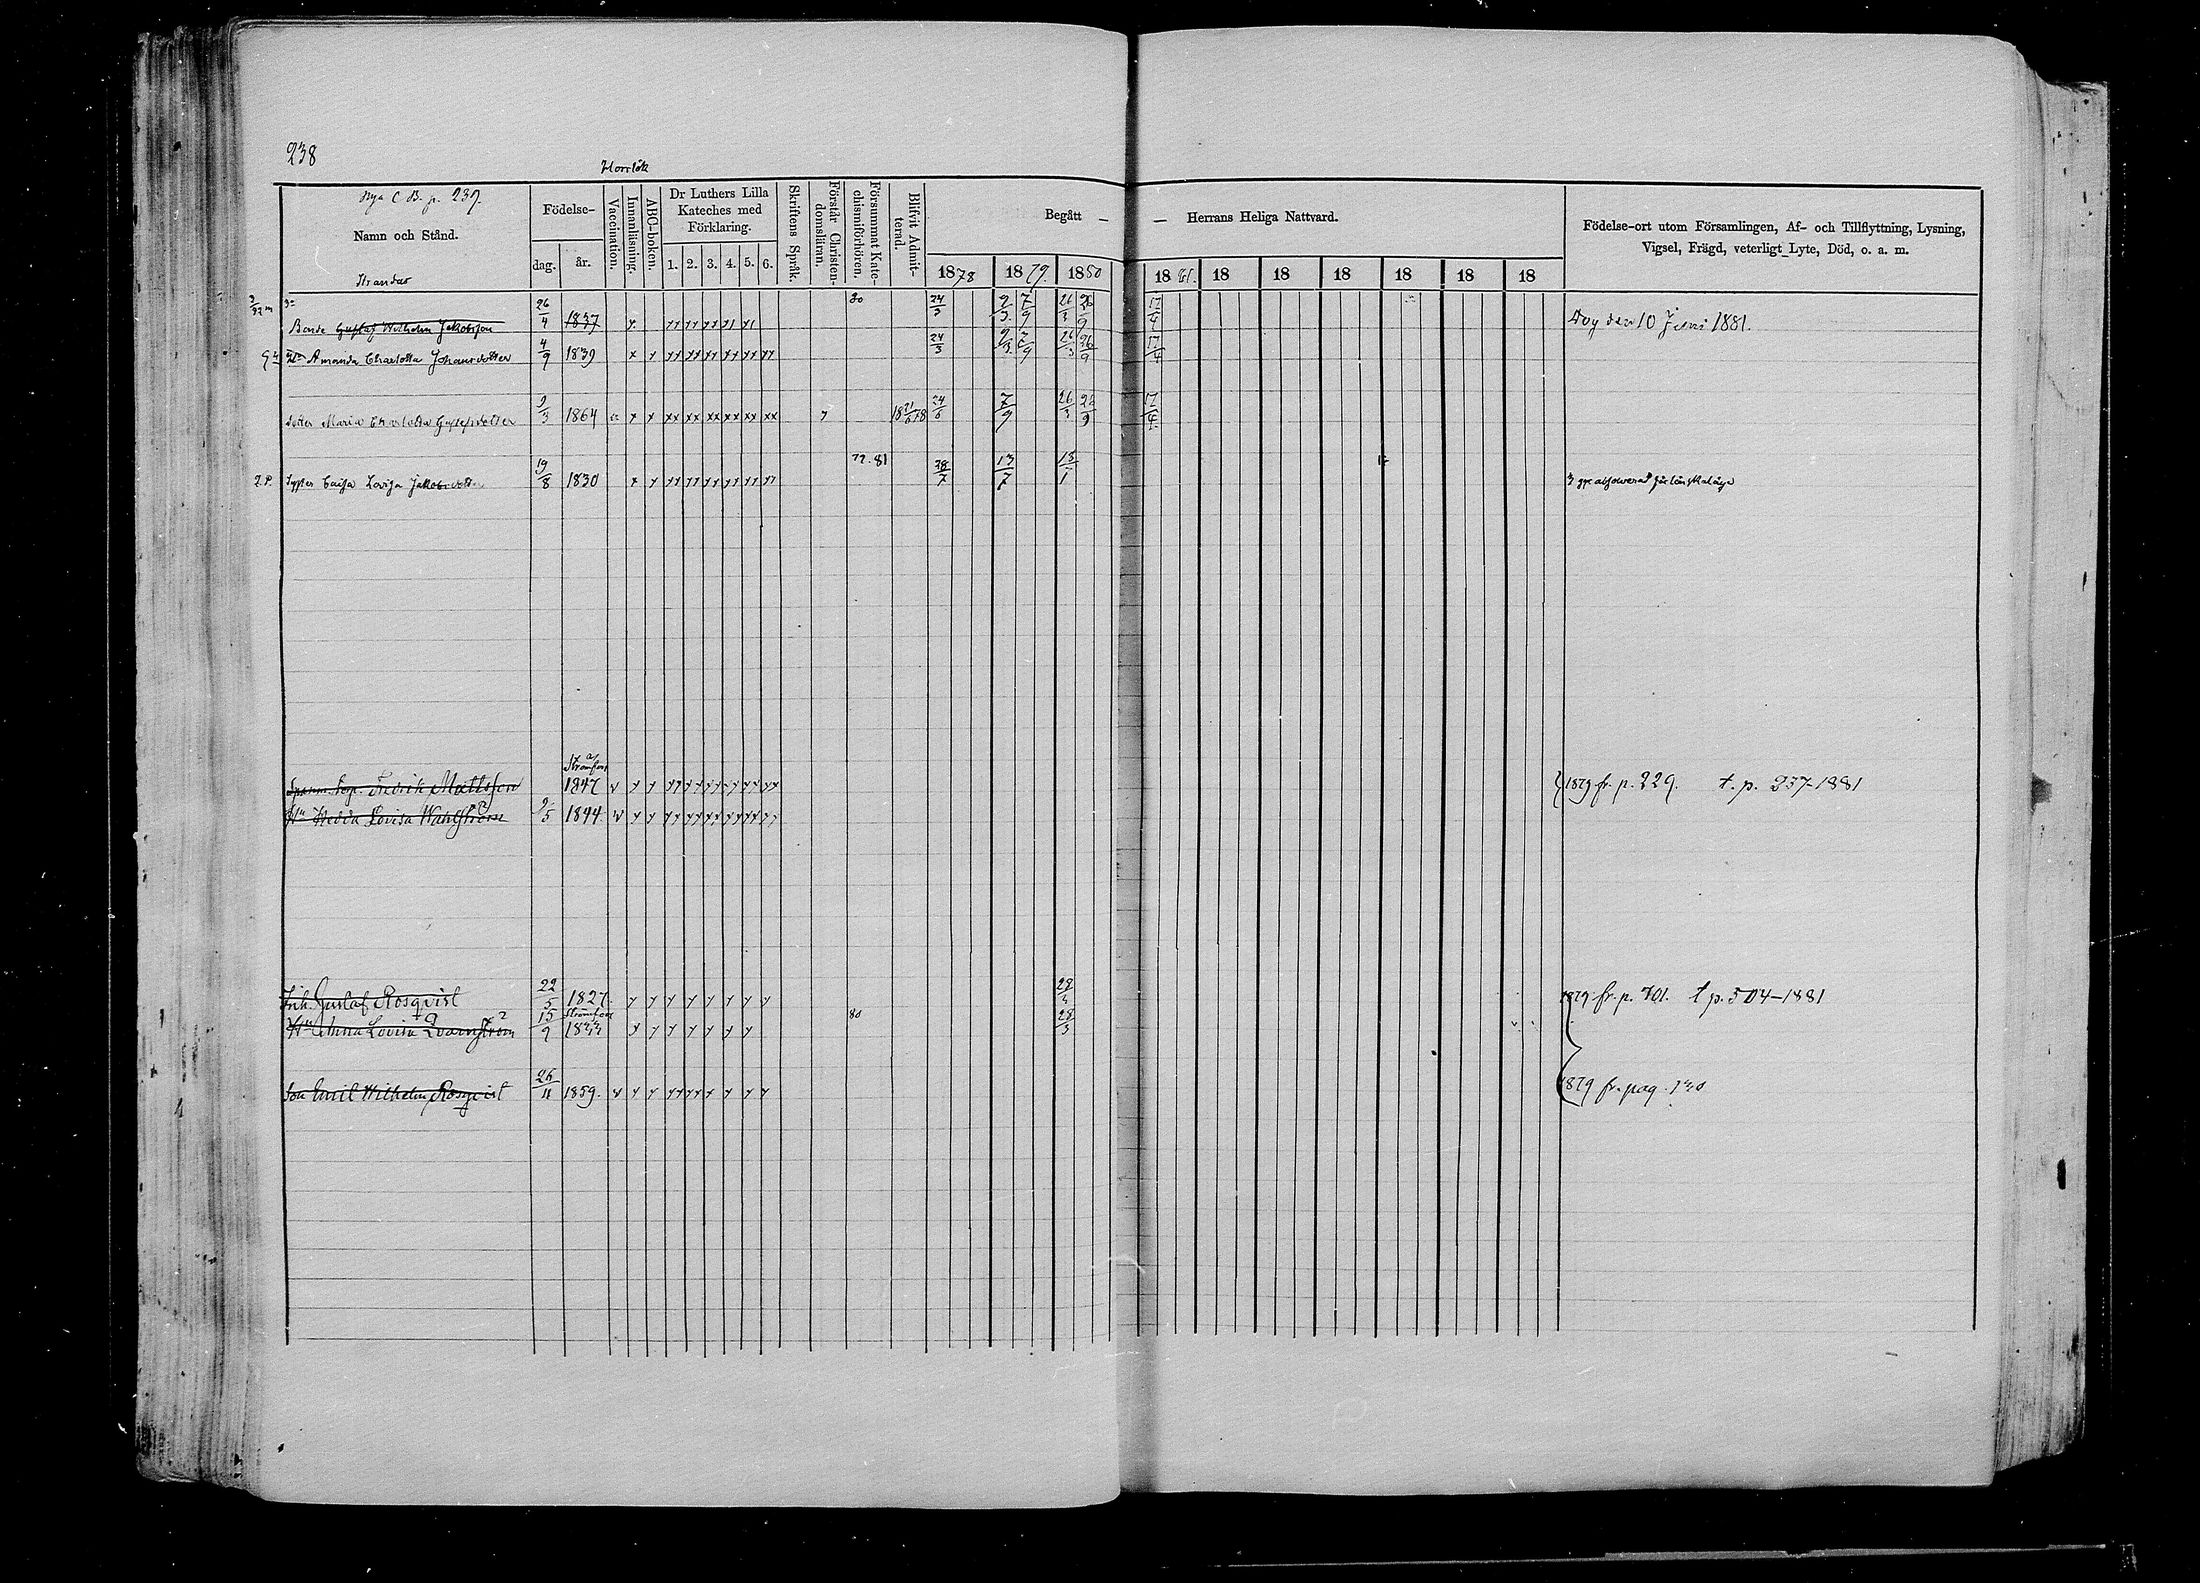 238
Horrlök
Nya C B. p. 239.
Namn och Stånd.
Strandas
Födelse-
dag. år.
Vaccination.
Innanläsning.
ABC-boken.
Dr Luthers Lilla
Kateches med
Förklaring.
1. 2. 3. 4. 5. 6.
Skriftens Språk.
Förstår Christen-
domsläran.
Försummat Kate-
chismiförhören.
Blifvit Admit-
terad.
Begått — — Herrans Heliga Nattvard.
1878 1879. 1880 1881. 18 18 18 18 18 18
Födelse-ort utom Församlingen, Af- och Tillflyttning, Lysning,
Vigsel, Frägd, veterligt Lyte, Död, o. a. m.
Bonde Gustaf Wilhelm Jakobsson 26/4 1837 80 24/3 2/3 7/9 26/3 26/9 17/4 Dog den 10 Juni 1881.
Amanda Charlotta Johansdotter 4/9 1839 24/3 2/3 7/9 26/3 26/9 17/4
dotter Maria Charlotta Gustafsdotter 9/3 1864 7/9 26/3 17/4
Syster Cajsa Lovisa Jakobsdotter 19/8 1830 77. 81 28/7 13/7 18/1
Fredrik Mattsson Strömfors 1847 1879 fr. p. 229. t. p. 237-1881
Hu Hedda Lovisa Wahlström 9/5 1844
Inh. Gustaf Rosqvist 22/5 1827. 28/3 1879 fr. p. 701. t p. 504-1881
Hu Anna Lovisa Qvarnström 15/9 Strömfors 1833 80 28/3
Son Emil Wilhelm Rosqvist 26/11 1859. 1879 fr. pag. 130